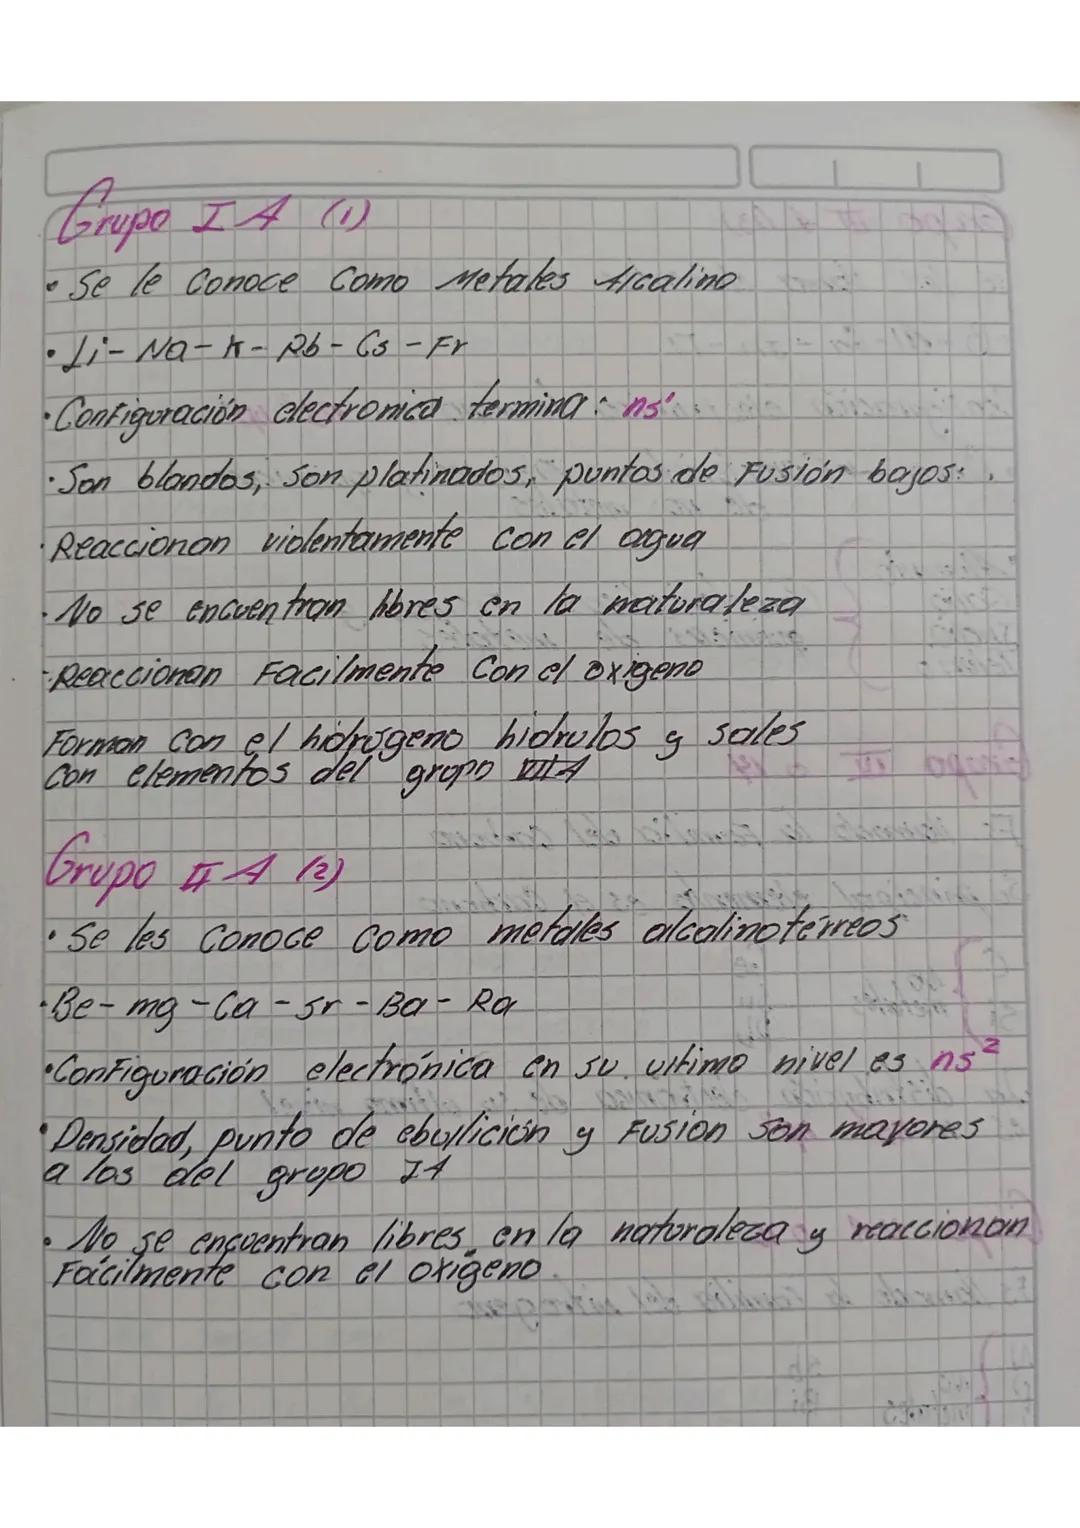 Grupo I A (1)
• Se le Conoce Como Metales Alcalino
• Li - Na - K - Rb - Cs - Fr
• Configuración electronica termina: ns¹
• Son blandos, Son platinados, puntos de Fusión bajos.
• Reaccionan violentamente con el agua
• No se encuentran libres en la naturaleza
• Reaccionan Facilmente Con el oxigeno
Forman Con el hidrógeno hidrulos y sales
Con elementos del grupo VIIA
Grupo II A (2)
• Se les Conoce Como metales alcalinotérreos
• Be - mg - Ca - Sr - Ba - Ra
• Configuración electrónica en su ultimo nivel es ns²
• Densidad, punto de ebullición y Fusión son mayores
a los del grupo IA
• No se encuentran libres en la naturaleza y reaccionan
Fácilmente con el oxigeno.